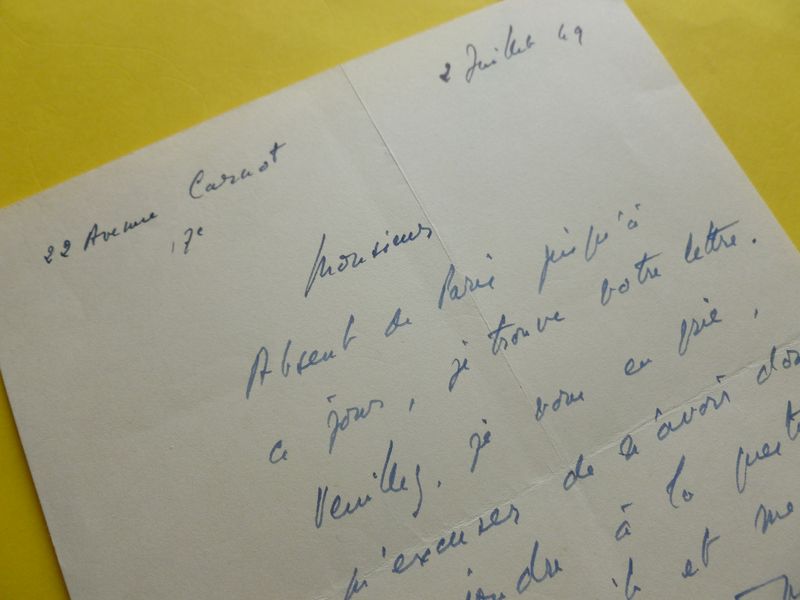 2 Juillet 49
22 Avenue Carnot
17e
Monsieur
Absent de Paris jusqu'à
ce jour, je trouve votre lettre.
Veuillez, je vous en prie,
m'excuser de n'avoir
à la
et me